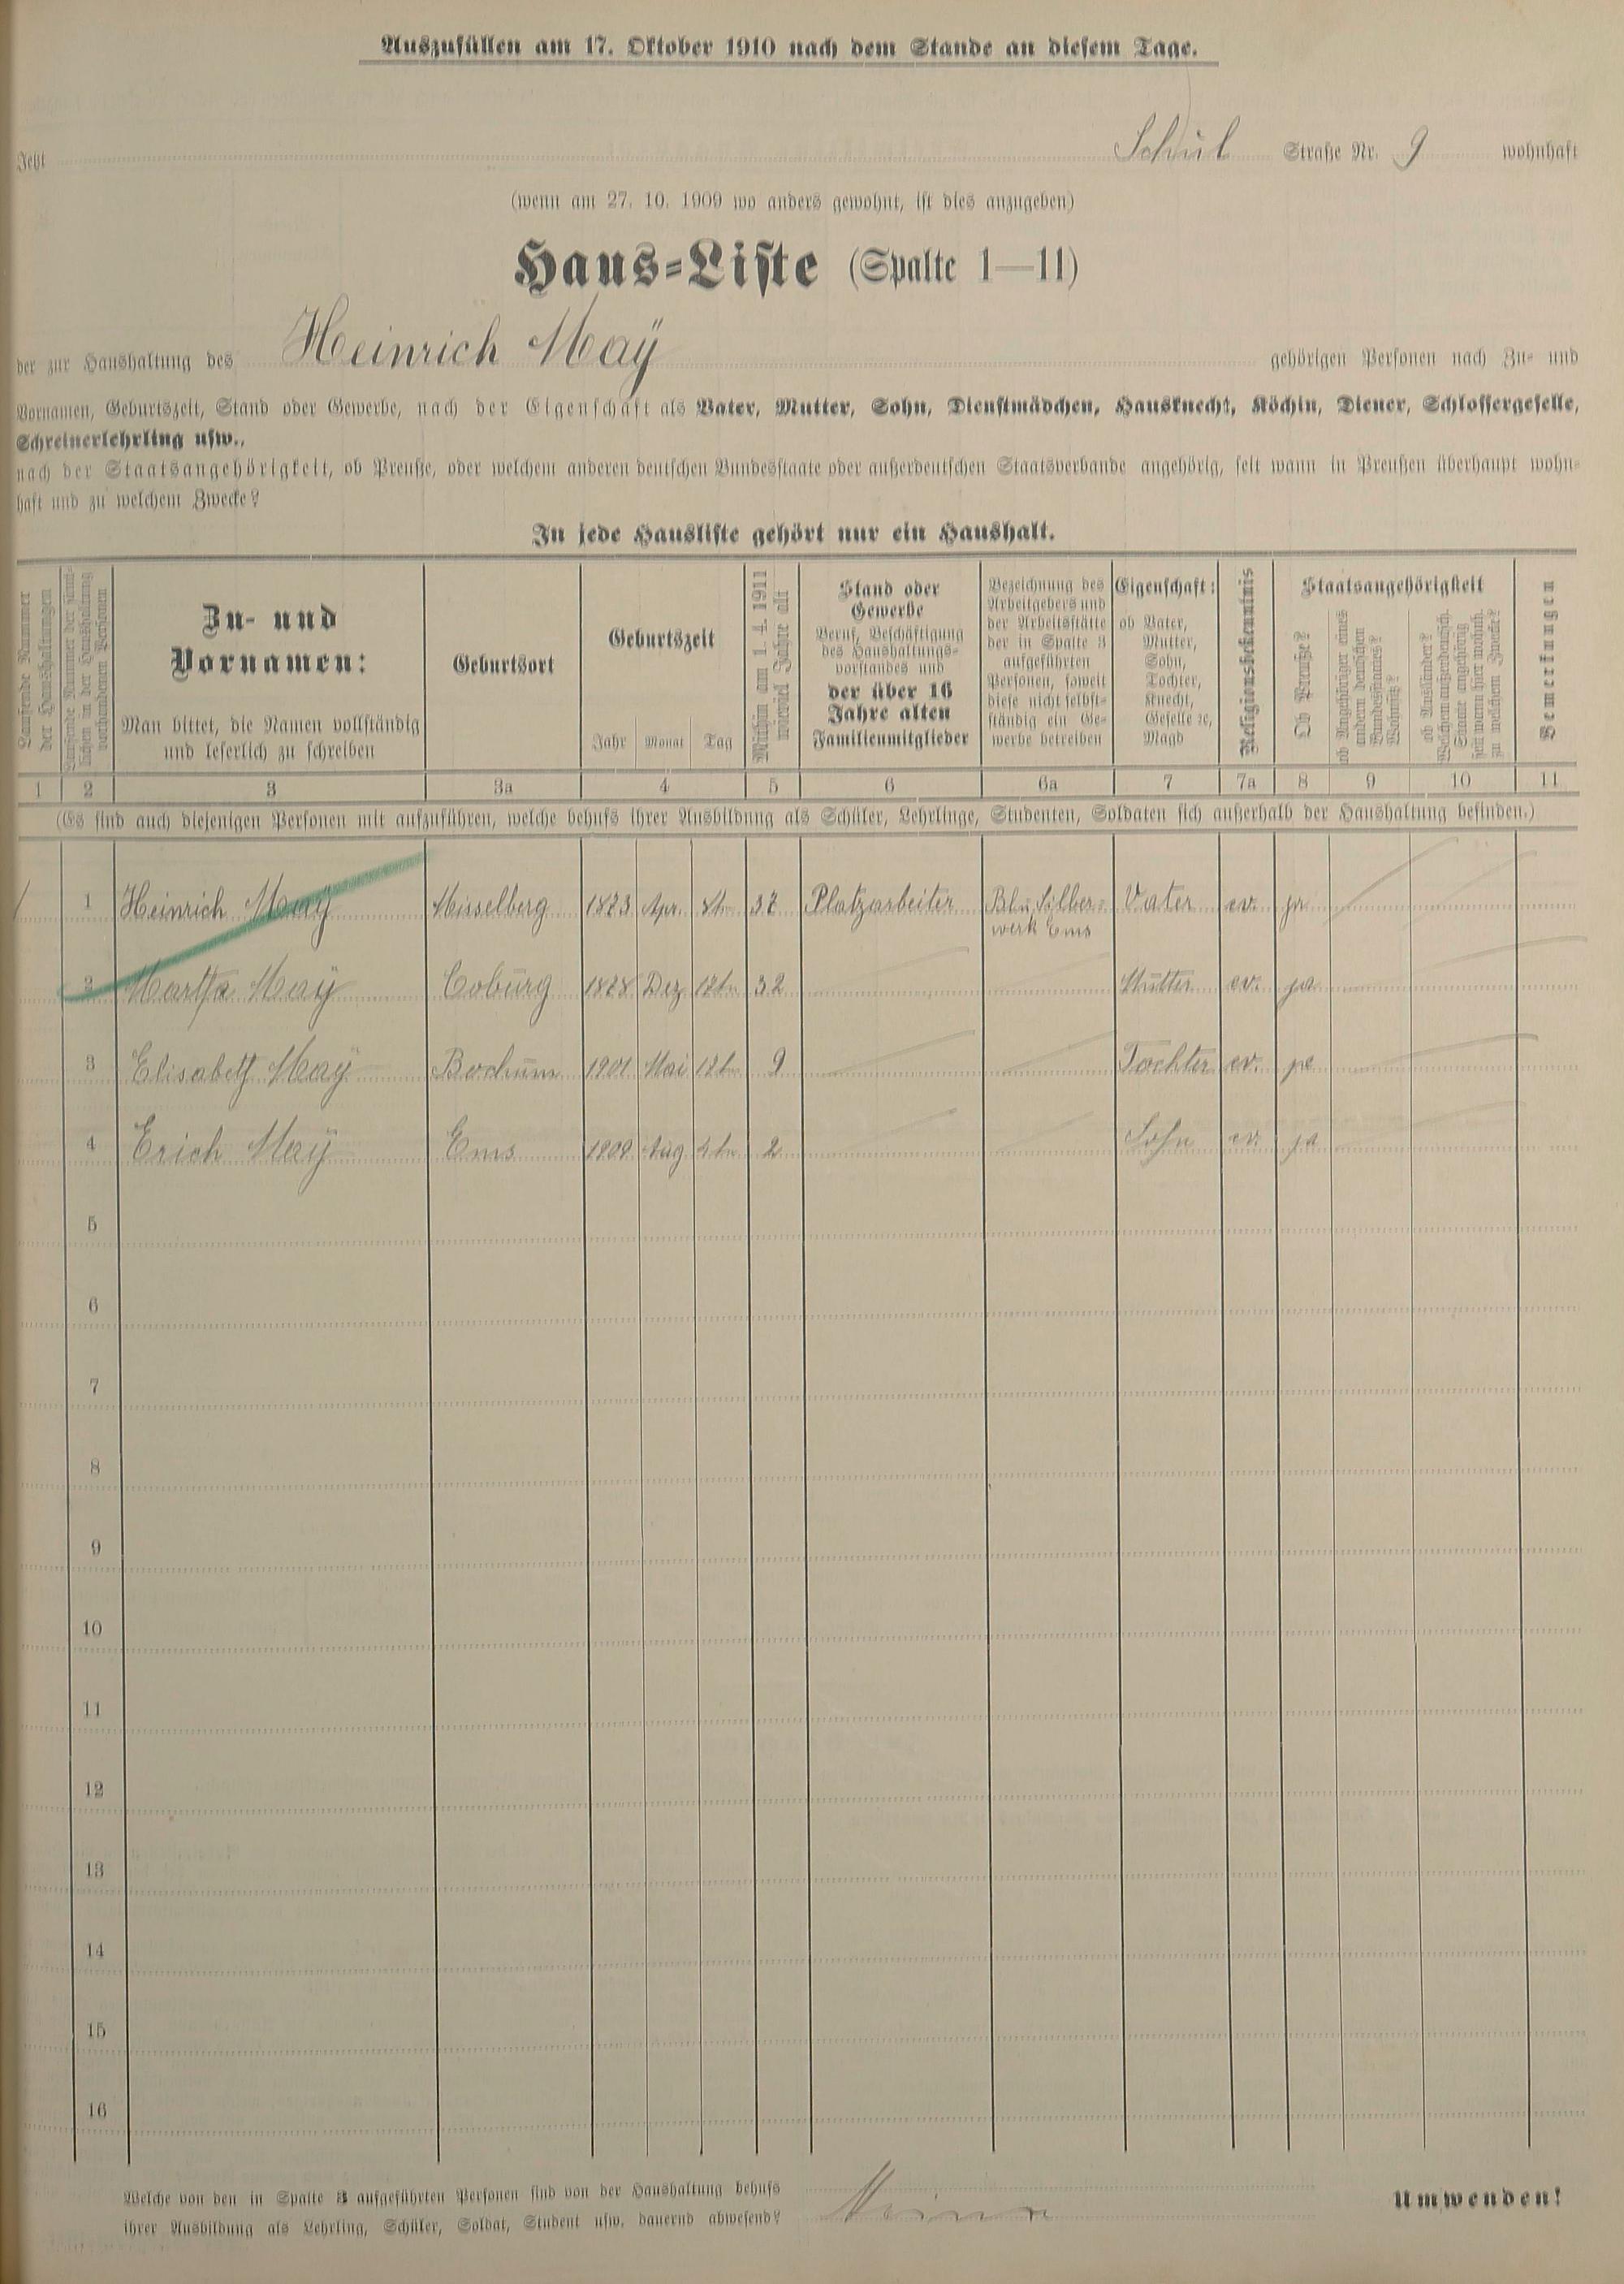 Auszufüllen am 17. Oktober 1910 nach dem Stande an diesem Tage.
Jetzt Schul Straße Nr. 9 wohnhaft
(wenn am 27. 10. 1909 wo anders gewohnt, ist dies anzugeben)
Haus-Liste (Spalte 1—11)
der zur Haushaltung des Heinrich Maÿ gehörigen Personen nach Zu- und
Vornamen, Geburtszeit, Stand oder Gewerbe, nach der Eigenschaft als Vater, Mutter, Sohn, Dienstmädchen, Hausknecht, Köchin, Diener, Schlossergeselle,
Schreinerlehrling usw.,
nach der Staatsangehörigkeit, ob Preuße, oder welchem anderen deutschen Bundesstaate oder außerdeutschen Staatsverbande angehörig, seit wann in Preußen überhaupt wohn-
haft und zu welchem Zwecke?
In jede Hausliste gehört nur ein Haushalt.
Laufende Nummer
der Haushaltungen
Laufende Nummer der sämt-
lichen in der Haushaltung
vorhandenen Personen
Zu- und
Vornamen:
Man bittet, die Namen vollständig
und leserlich zu schreiben
Geburtsort
Geburtszeit
Jahr Monat Tag
Mithin am 1. 4. 1911
wieviel Jahre alt
Stand oder
Gewerbe
Beruf, Beschäftigung
des Haushaltungs-
vorstandes und
der über 16
Jahre alten
Familienmitglieder
Bezeichnung des
Arbeitgebers und
der Arbeitsstätte
der in Spalte 3
aufgeführten
Personen, soweit
diese nicht selbst-
ständig ein Ge-
werbe betreiben
Eigenschaft:
ob Vater,
Mutter,
Sohn,
Tochter,
Knecht,
Geselle ꝛc,
Magd
Religionsbekenntnis
Staatsangehörigkeit
Ob Preuße?
ob Angehöriger eines
andern deutschen
Bundesstaates?
Wohnsitz?
ob Ausländer?
Welchem außerdeutsch.
Staate angehörig
seit wann hier wohnh.
zu welchem Zwecke?
Bemerkungen
1 2 3 3a 4 5 6 6a 7 7a 8 9 10 11
(Es sind auch diejenigen Personen mit aufzuführen, welche behufs ihrer Ausbildung als Schüler, Lehrlinge, Studenten, Soldaten sich außerhalb der Haushaltung befinden.)
1 Heinrich Maÿ Misselberg 1873 Apr. 37 Platzarbeiter Bl. u. Silber- Vater ev. ja
werk Ems
2 Martha Maÿ Coburg 1878 Dez 12tn 32 Mutter ev. ja
3 Elisabeth Maÿ Bochum 1901 Mai 12tn 9 Tochter ev. ja
4 Erich Maÿ Ems Aug 2 Sohn ev. ja
5
6
7
8
9
10
11
12
13
14
15
16
Welche von den in Spalte 3 aufgeführten Personen sind von der Haushaltung behufs
ihrer Ausbildung als Lehrling, Schüler, Soldat, Student usw. dauernd abwesend?
Umwenden!